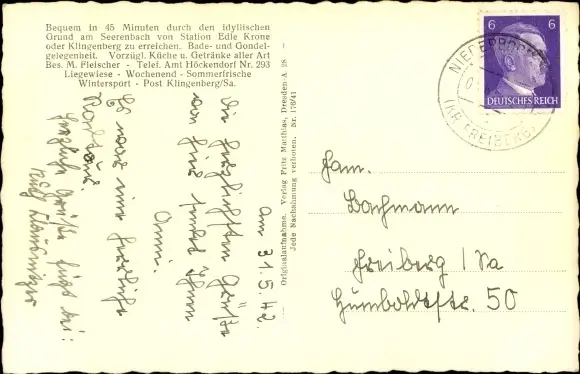 Bequem in 45 Minuten durch den idyllischen
Grund am Seerenbach von Station Edle Krone
oder Klingenberg zu erreichen. Bade- und Gondel-
gelegenheit. Vorzügl. Küche u. Getränke aller Art
Bes. M. Fleischer - Telef. Amt Höckendorf Nr. 293
Liegewiese - Wochenend - Sommerfrische
Wintersport - Post Klingenberg/Sa.
am 31.5.42.
Die herzlichsten Grüße
von hier sendet Ihnen
Anni.
Es war eine herrliche
Radtour.
Herzliche Grüße fügt bei:
Originalaufnahme. Verlag Fritz Matthias, Dresden-A 28 -
Jede Nachahmung verboten. Nr. 176/41
6 6
DEUTSCHES REICH
(KR. FREIBERG)
Fam.
Bachmann
Freiberg / Sa
Humboldtstr. 50